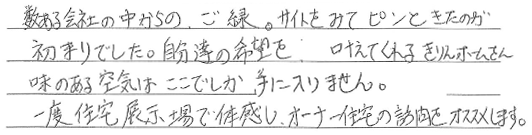 数ある会社の中からの、ご縁。サイトをみてピンときたのが
初まりでした。自分達の希望を 叶えてくれるきりんホームさん
味のある空気は ここでしか、手に入りません。
一度住宅展示場で体感し、オーナー住宅の訪問をオススメします。